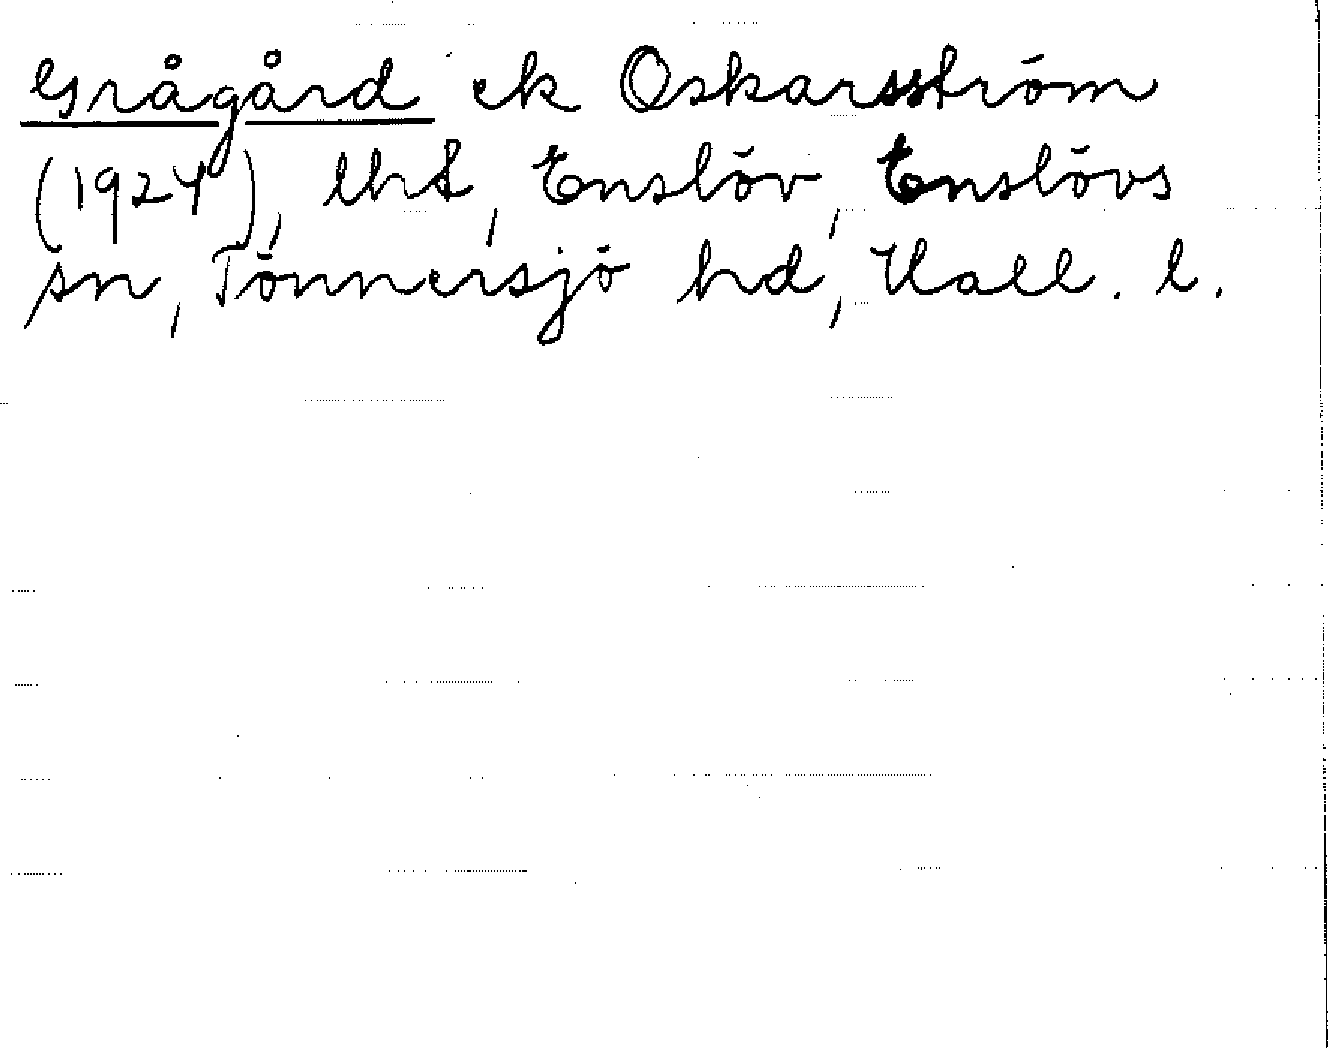 Grågård ek Oskarsström
(1924), lht, Enslöv, Enslövs
sn, Tönnersjö hd, Hall. l.